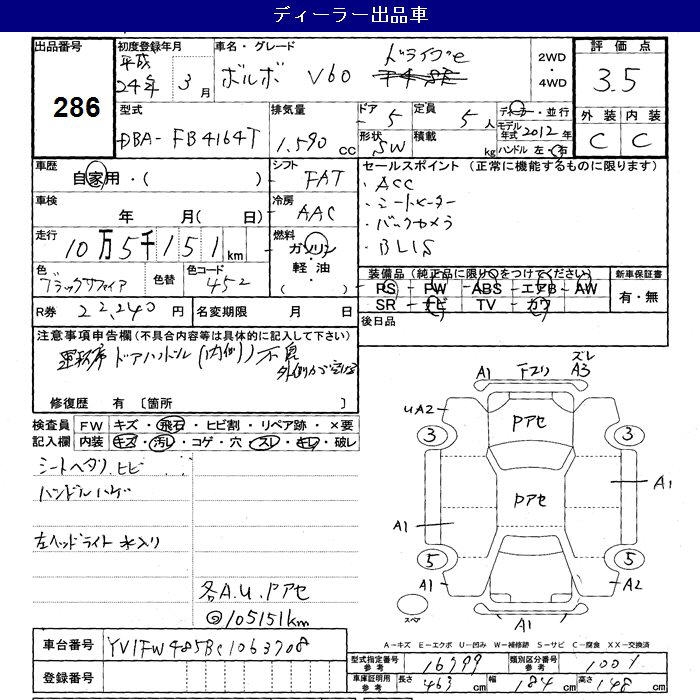 ディーラー出品車
出品番号 初度登録年月 車名・グレード 2WD・4WD 評価点
286 平成24年 3月 ボルボ V60 ドライブe 3.5
型式 排気量 ドア 5 定員 5人 ディーラー・並行 外装 内装
DBA-FB4164T 1.590cc 形状 SW 積載 kg モデル年式 2012年 C C
ハンドル 左・右
車歴 自家用・( ) シフト FAT セールスポイント (正常に機能するものに限ります)
車検 年 月( 日) 冷房 AAC ・ACC
・シートヒーター
・バックカメラ
・BLIS
走行 10万5千151km 燃料 ガソリン 軽油・( )
色 ブラックサファイア 色替 色コード 452
装備品 (純正品に限り○をつけてください) 新車保証書
PS-PW-ABS-エアB-AW 有・無
SR-ナビ-TV-カワ
R券 22,240円 名変期限 月 日 後日品
注意事項申告欄 (不具合内容等は具体的に記入して下さい)
運転席ドアハンドル(内側)不良
修復歴 有 [箇所 ]
検査員記入欄 FW キズ・飛石・ヒビ割・リペア跡・×要
内装 キズ・汚レ・コゲ・穴・スレ・キレ・破レ
シートヘタリ、ヒビ
ハンドルハゲ
左ヘッドライト水入り
各A.U.Pアセ
◎105151km
A1 Fスリ ズレ A3
UA2 Pアセ
3 3
Pアセ A1
A1
5 5
A1 A2
スペア A1
A-キズ E-エクボ U-凹み W-補修跡 S-サビ C-腐食 XX-交換済
車台番号 YV1FW485BC1063708
登録番号
型式指定番号参考 16799 類別区分番号参考 1001
車庫証明用参考 長さ 463cm 幅 184cm 高さ 148cm